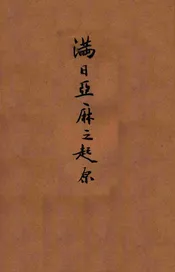 满日亞麻之起原